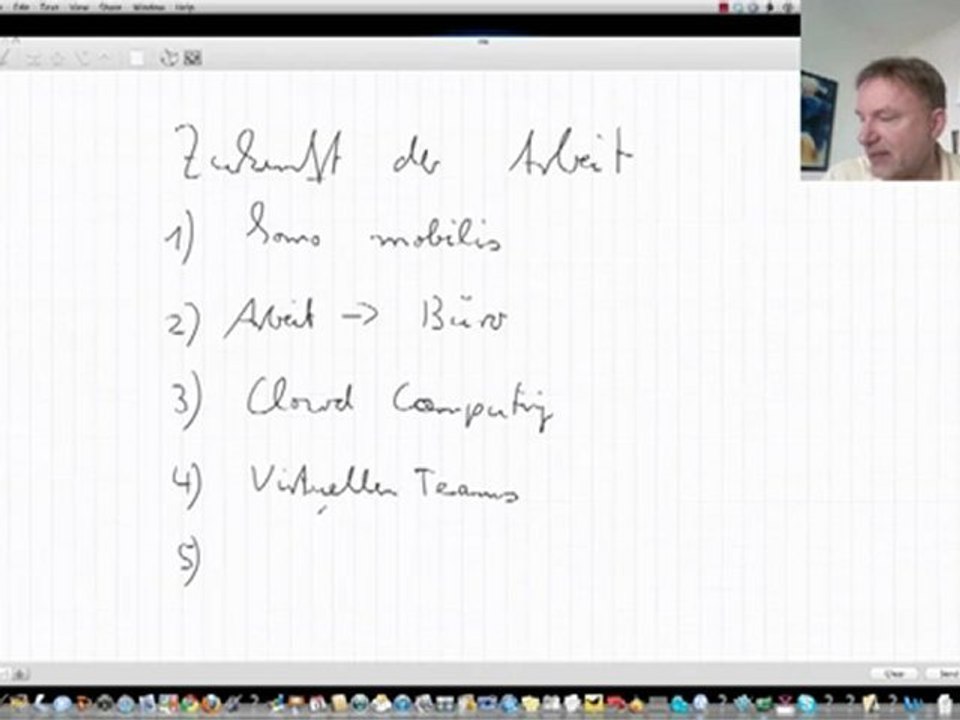 Edit View Share Window Help
Zukunft der Arbeit
1) Homo mobilis
2) Arbeit -> Büro
3) Clowd Computing
4) Virtuellen Teams
5)
Clear Send